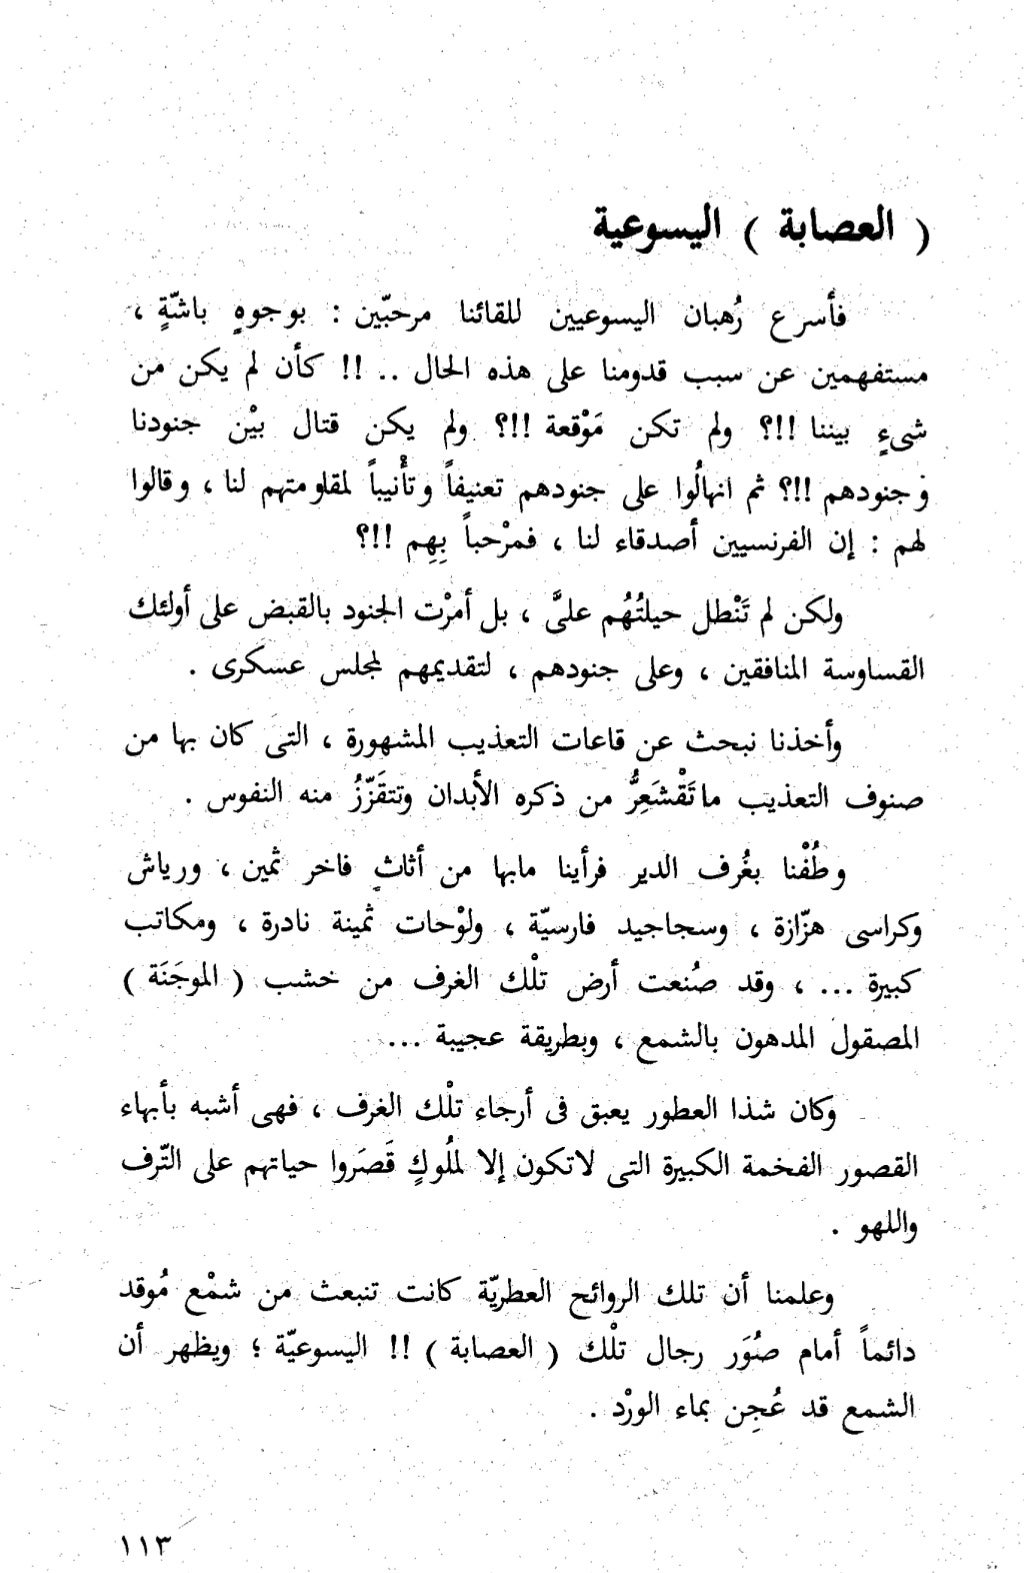 ( العصابة ) اليسوعية
فأسرع رُهبان اليسوعيين للقائنا مرحبّين : بوجوهٍ باشّةٍ ،
مستفهمين عن سبب قدومنا على هذه الحال .. !! كأن لم يكن من
شىءٍ بيننا !!؟ ولم تكن مَوْقعة !!؟ ولم يكن قتال بيْن جنودنا
وجنودهم !!؟ ثم انهالُوا على جنودهم تعنيفاً وتأْنيباً لمقاومتهم لنا ، وقالوا
لهم : إن الفرنسيين أصدقاء لنا ، فمرْحباً بِهِم !!؟
ولكن لم تَنْطل حيلتُهُم علىَّ ، بل أمرْت الجنود بالقبض على أولئك
القساوسة المنافقين ، وعلى جنودهم ، لتقديمهم لمجلس عسكرى .
وأخذنا نبحث عن قاعات التعذيب المشهورة ، التى كان بها من
صنوف التعذيب ماتَقْشَعِرُّ من ذكره الأبدان وتتقَزّزُ منه النفوس .
وطُفْنا بغُرف الدير فرأينا مابها من أثاثٍ فاخر ثمين ، ورياش
وكراسى هزّازة ، وسجاجيد فارسيّة ، ولوْحات ثمينة نادرة ، ومكاتب
كبيرة ... ، وقد صُنعت أرض تلْك الغرف من خشب ( الموجَنَة )
المصقول المدهون بالشمع ، وبطريقة عجيبة ...
وكان شذا العطور يعبق فى أرجاء تلْك الغرف ، فهى أشبه بأبهاء
القصور الفخمة الكبيرة التى لاتكون إلا لملُوكٍ قَصَروا حياتهم على التّرف
واللهو .
وعلمنا أن تلك الروائح العطريّة كانت تنبعث من شمْع مُوقد
دائماً أمام صُوَر رجال تلْك ( العصابة ) !! اليسوعيّة ؛ ويظهر أن
الشمع قد عُجِن بماء الورْد .
١١٣